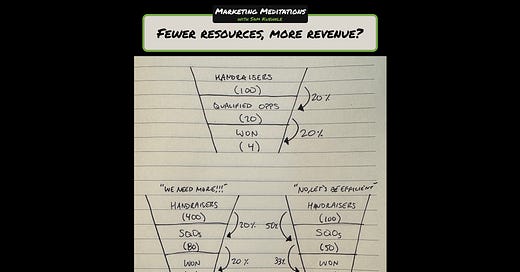 Marketing Meditations
with Sam Kuehnle
Fewer resources, more revenue?
HANDRAISERS
(100)
20%
QUALIFIED OPPS
(20)
20%
WON
(4)
"WE NEED MORE!!!"
HANDRAISERS
(400)
20%
SQOs
(80)
20%
WON
"NO, LET'S BE EFFICIENT"
HANDRAISERS
(100)
50%
SQOs
(50)
33%
WON